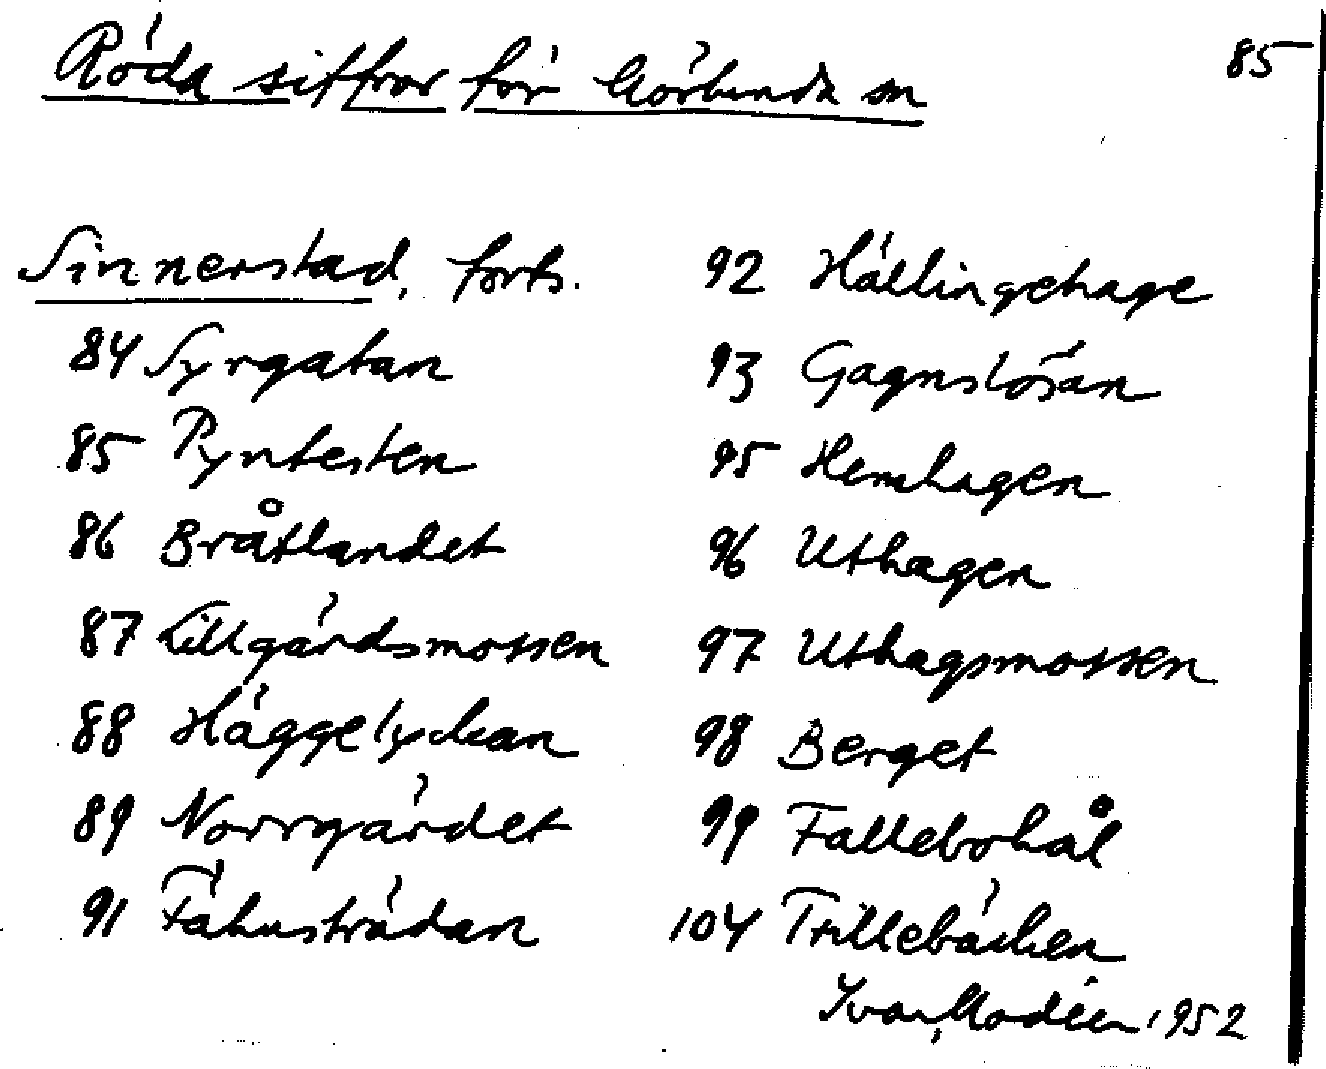 Röda siffror för Görbunda sn
85
Sinnerstad, forts.
84 Syrgatan
85 Pyntesten
86 Bråtlandet
87 Lillgärdsmossen
88 Häggelyckan
89 Norrgärdet
91 Fähusträdan
92 Hällingehage
93 Gagnslösan
95 Hemhagen
96 Uthagen
97 Uthagsmossen
98 Berget
99 Fallebohål
104 Trillebäcken
Ivar Modéer 1952